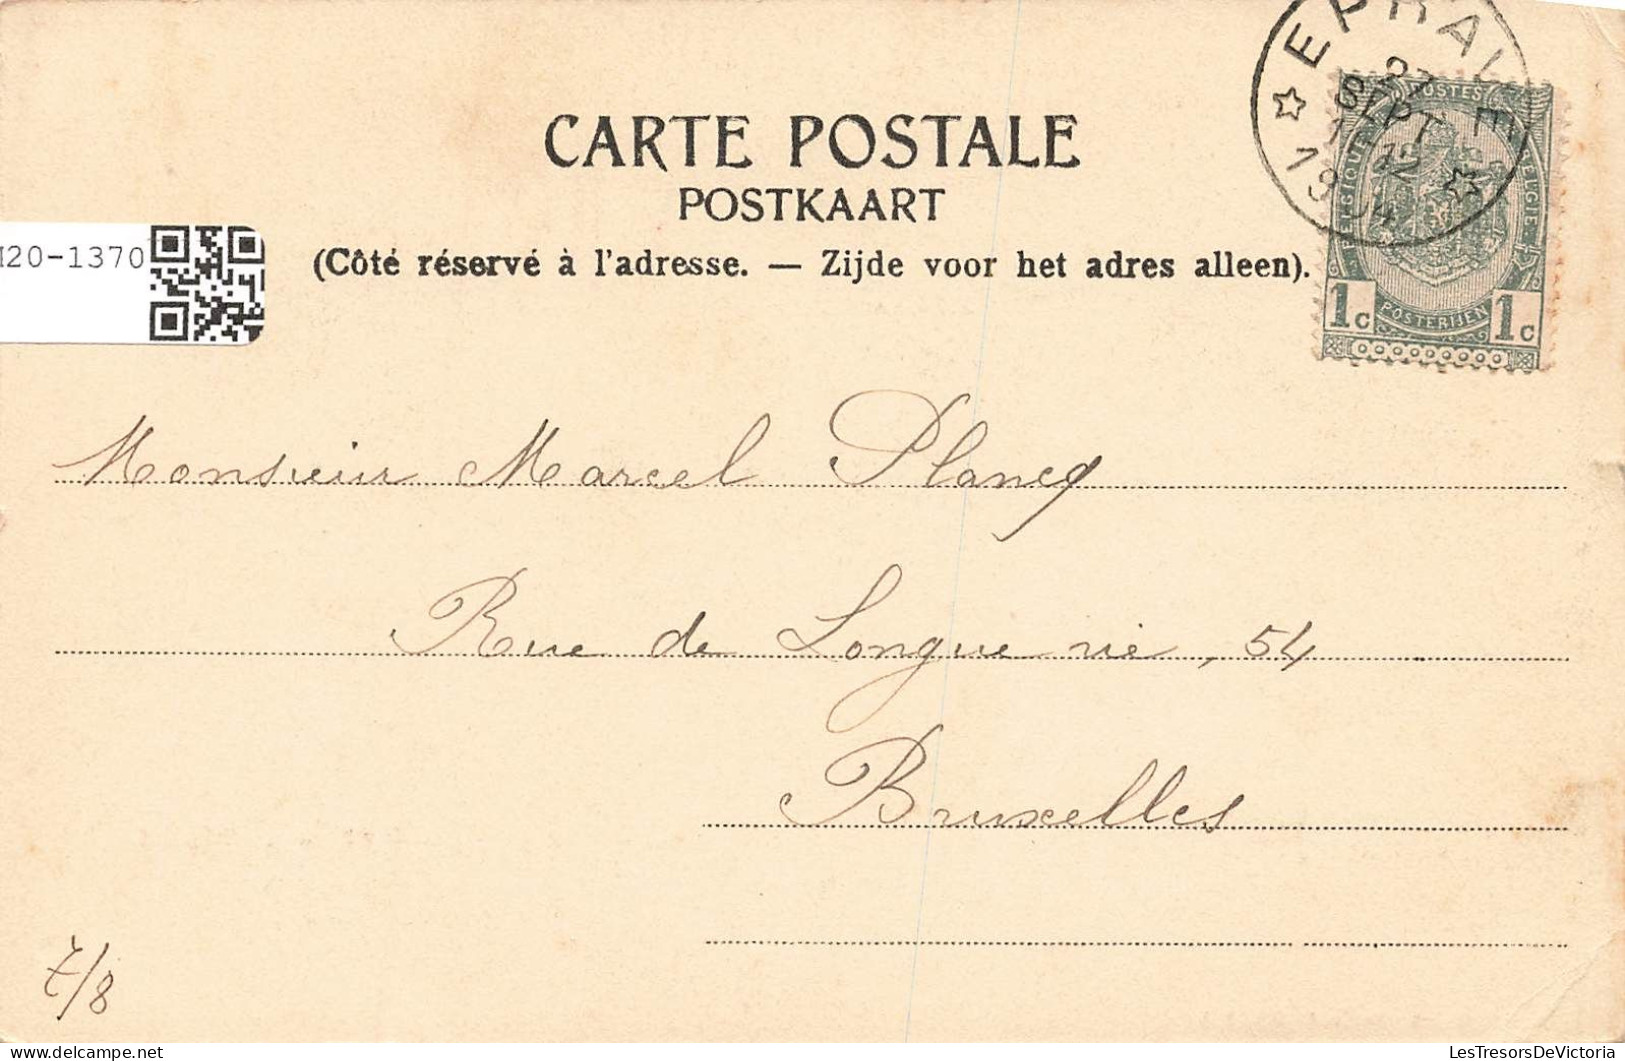 EPRAVE
27
SEPT
12
1904
POSTES
BELGIQUE
BELGIE
CARTE POSTALE
POSTKAART
(Côté réservé à l'adresse. — Zijde voor het adres alleen).
20-1370
1c POSTERIJEN 1c
Monsieur Marcel Plancq
Rue de Longue vie, 54
Bruxelles
7/8
LesTresorsDeVictoria